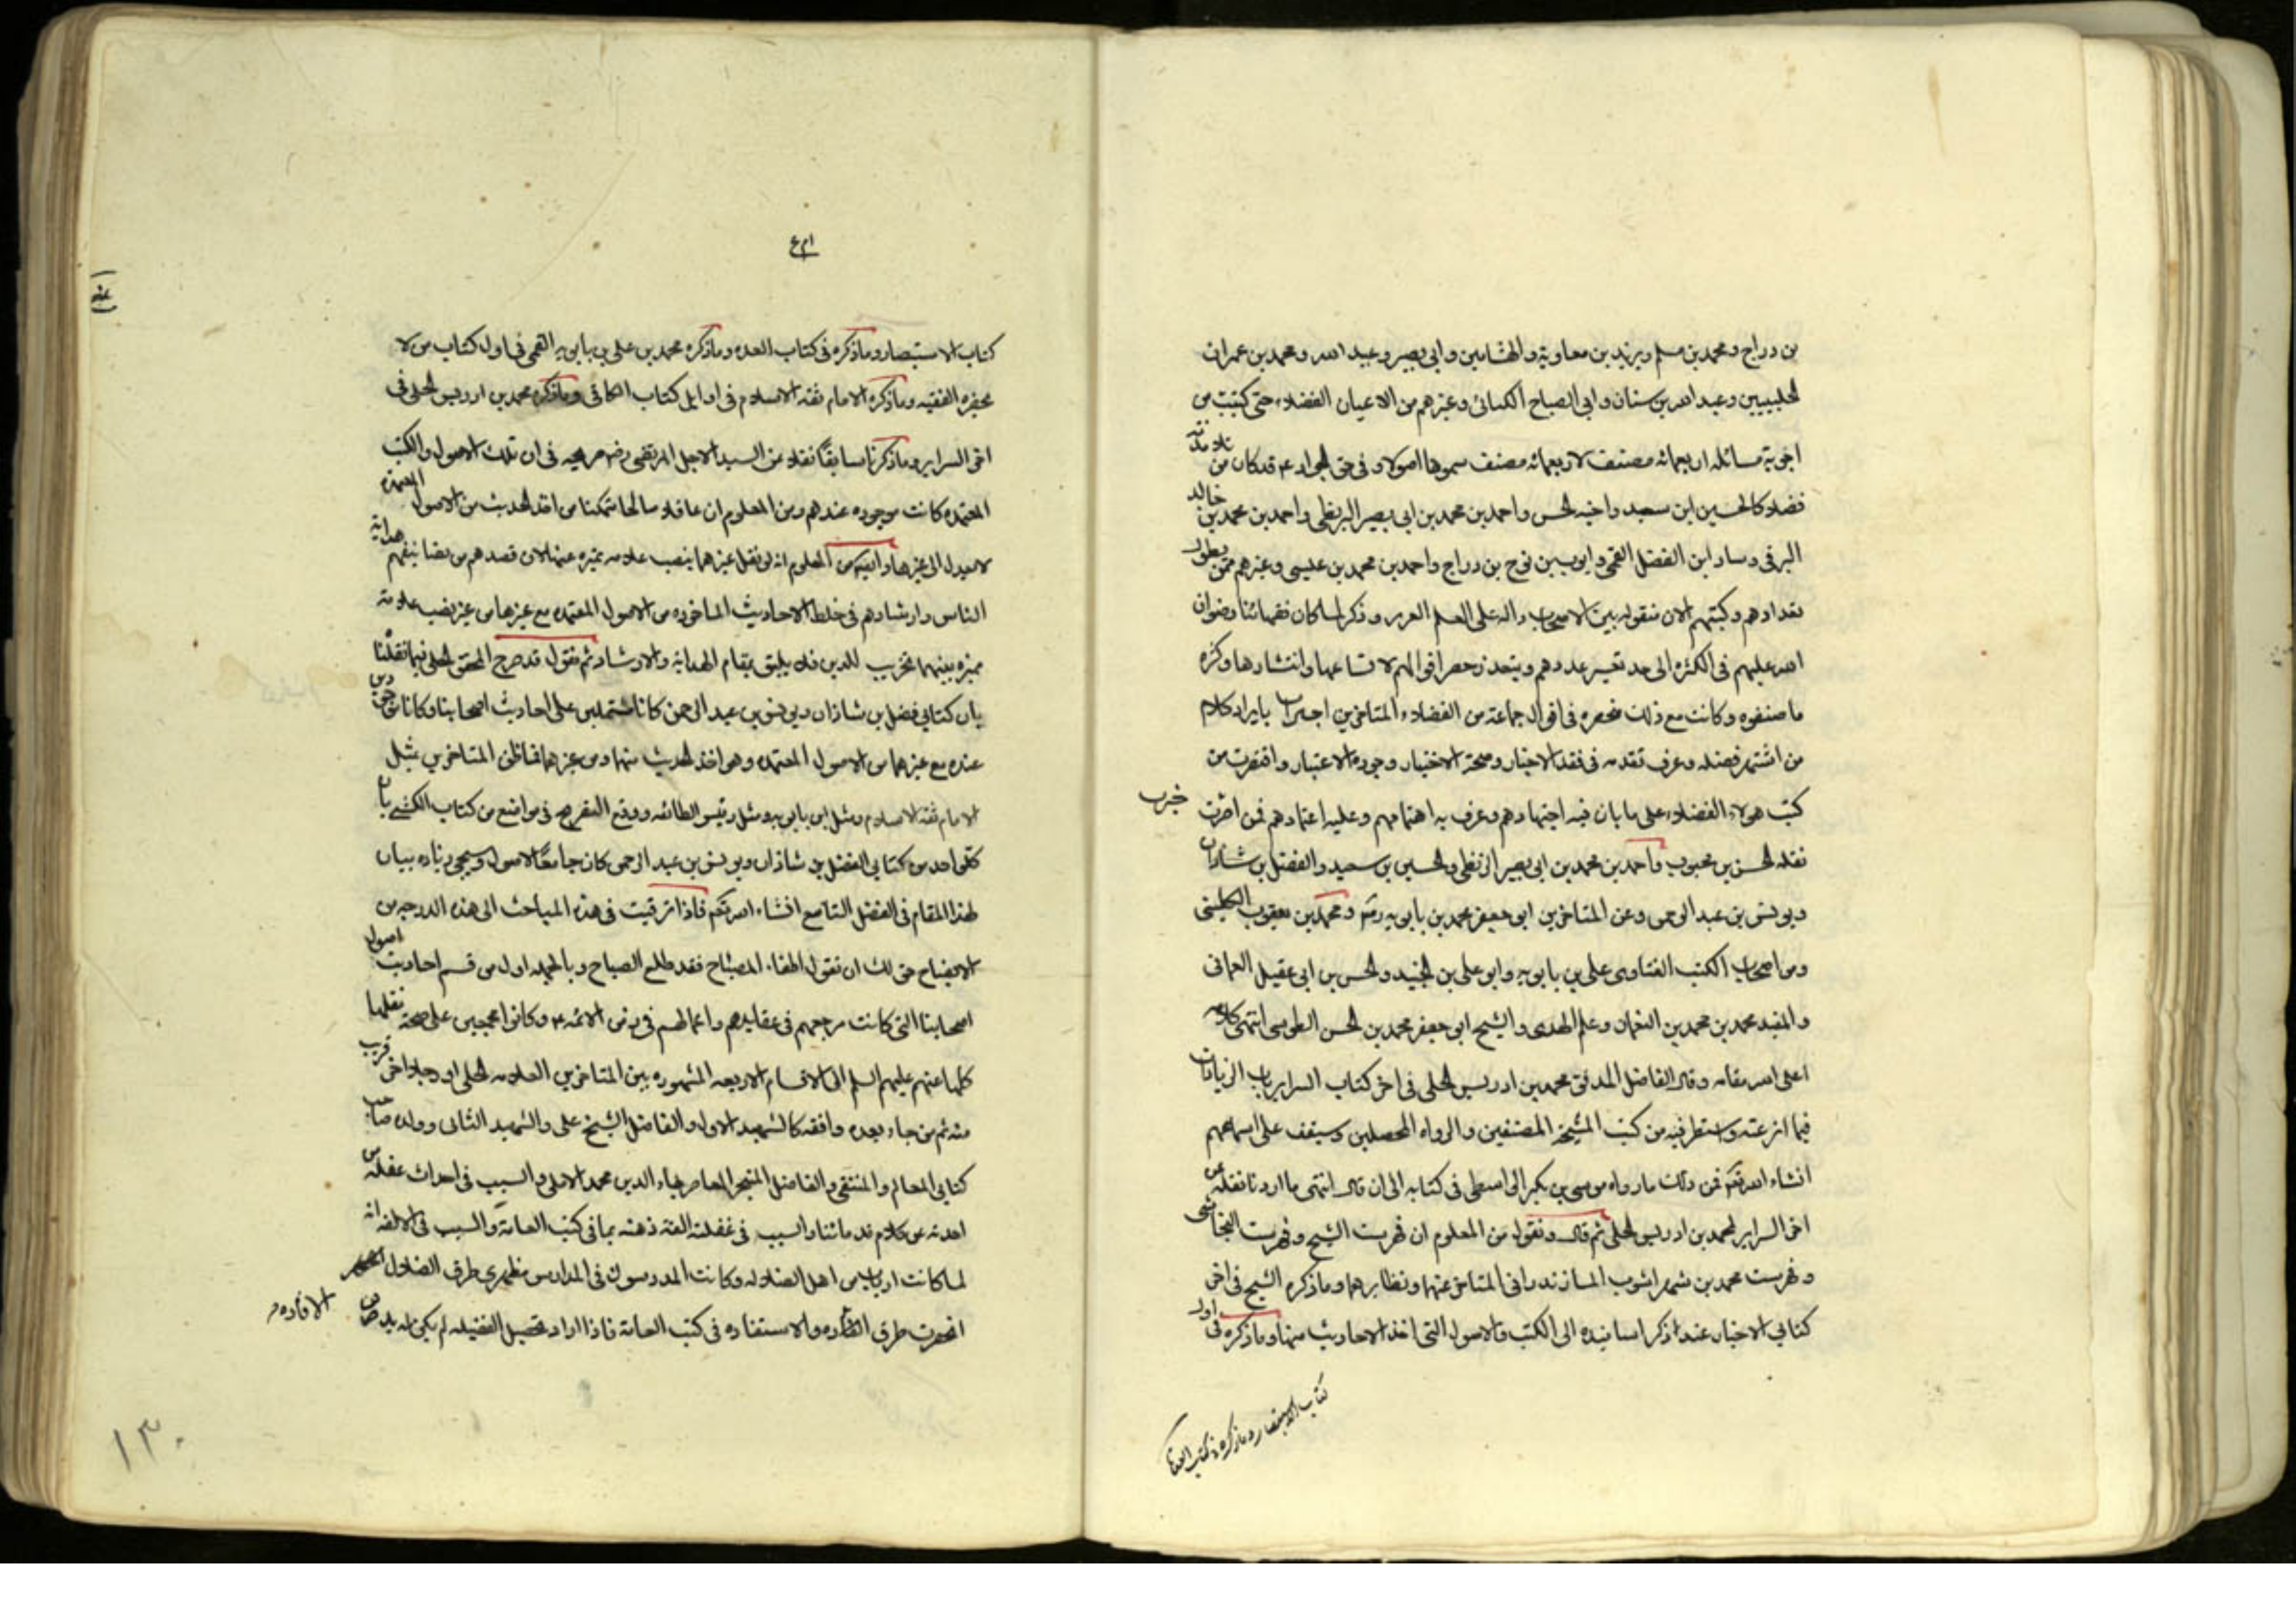 بن دراج ومحمد بن مسلم وبريد بن معاوية والهشامين وابي بصير وعبيد الله ومحمد بن عمران
الحلبيين وعبد الله بن سنان وابي الصباح الكناني وغيرهم من الاعيان الفضلاء حتى كتبت من
اجوبة مسائله اربعمائه مصنف لاربعمائه مصنف سموها اصولا وفي حق الجواد ع قد كان من تلامذته
فضلاء كالحسين ابن سعيد واخيه الحسن واحمد بن محمد بن ابي بصير البزنطي واحمد بن محمد بن خالد
البرقي وساد ابن الفضل القمي وايوب بن نوح بن دراج واحمد بن محمد بن عيسى وغيرهم ممن يطول
تعدادهم وكتبهم الان منقوله بين الاصحاب داله على العلم الغزير وذكر لما كان فقهائنا رضوان
الله عليهم في الكثره الى حد تعسير عددهم ويتعذر حصر اقوالهم لاتساعها وانتشارها وكثره
ما صنفوه وكانت مع ذلك منحصره في اقوال جماعة من الفضلاء المتاخرين اجتزات بايراد كلام
من اشتهر فضله وعرف تقدمه في نقد الاخبار وصحة الاختيار وجوده الاعتبار واقتصرت من
كتب هؤلاء الفضلاء على ما بان فيه اجتهادهم وعرف به اهتمامهم وعليه اعتمادهم فمن اخترت
نقله الحسن بن محبوب واحمد بن محمد بن ابي بصير البزنطي والحسين بن سعيد والفضل بن شاذان
ويونس بن عبد الرحمن وعن المتاخرين ابو جعفر محمد بن بابويه ره ومحمد بن يعقوب الكليني
ومن اصحاب الكتب الفتاوى علي بن بابويه وابو علي بن الجنيد والحسن بن ابي عقيل العماني
والمفيد محمد بن محمد بن النعمان وعلم الهدى والشيخ ابي جعفر محمد بن الحسن الطوسي انتهى كلامه
اعلى الله مقامه وقال الفاضل المدقق محمد بن ادريس الحلي في اخر كتاب السراير باب الزيادات
فيما انزعته واستطرفته من كتب المشيخة المصنفين والرواه المحصلين وسيقف على اسمائهم
انشاء الله تعالى فمن ذلك ما رواه موسى بن بكر الواسطي في كتابه الى ان قال انتهى ما اردنا نقله من
اخر السراير لمحمد بن ادريس الحلي ثم قال ونقول من المعلوم ان فهرست الشيخ وفهرست النجاشي
وفهرست محمد بن شهراشوب المازندراني المتاخر عنها ونظايرهما وما ذكره الشيخ في اخر
كتابي الاخبار عند ذكر اسانيده الى الكتب والاصول التي اخذ الاحاديث منها وما ذكره في اول
كتاب الاستبصار وما ذكره في كتاب العدة
كتاب الاستبصار وما ذكره في كتاب العده وما ذكره محمد بن علي بن بابويه القمي في اول كتاب من لا
يحضره الفقيه وما ذكره الامام ثقة الاسلام في اوايل كتاب الكافي وما ذكره محمد بن ادريس الحلي في
اخر السراير وما ذكرنا سابقاً نقلا عن السيد الاجل المرتضى رضى صريحه في ان تلك الاصول والكتب
المعتمده كانت موجوده عندهم ومن المعلوم ان عاقلا صالحا متمكنا من اخذ الحديث من الاصول المعتمده
لا يعدل الى غيرها وايضا من المعلوم انه لو نقل غيرهما ينصب علامه مميزه عنها لان قصدهم من تصانيفهم هداية
الناس وارشادهم فى خلط الاحاديث الماخوذه من الاصول المعتمده مع غيرها من غير نصب علامة
مميزه بينهما تخريب للدين فلا يليق بمقام الهداية والارشاد ثم نقول قد صرح المحقق الحلي فيما نقلنا
بان كتابي فضل بن شاذان ويونس بن عبد الرحمن كانا مشتملين على احاديث اصحابنا وكانا موجودين
عنده مع غيرهما من الاصول المعتمده وهو اخذ الحديث منهما ومن غيرهما فما ظن المتاخرين بمثل
الامام ثقة الاسلام ومثل ابن بابويه ومثل رئيس الطائفه ووقع التصريح في مواضع من كتاب الكشي بان
كل واحد من كتابي الفضل بن شاذان ويونس بن عبد الرحمن كان جامعاً لاصول وسيجيء زياده بيان
لهذا المقام في الفصل التاسع انشاء الله تعالى فاذا ترقيت في هذه المباحث الى هذه الدرجه من
الايضاح حق لك ان تقول اطفاء المصباح فقد طلع الصباح وبالجمله اول من قسم احاديث اصول
اصحابنا التي كانت مرجعهم في عقايدهم واعمالهم في زمن الائمه ع وكانوا مجمعين على صحة نقلها
كلها عنهم عليهم السلم الى الاقسام الاربعه المشهوره بين المتاخرين العلامه الحلي او رجل اخر قريب
منه ثم من جاء بعده وافقه كالشهيد الاول والفاضل الشيخ علي والشهيد الثاني وولده صاحب
كتابي المعالم والمنتقى والفاضل المتبحر المعاصر بهاء الدين محمد العاملي والسبب في احداث غفله من
احدثه عن كلام قدمائنا والسبب في غفلته الفة ذهنه بما في كتب العامة والسبب في الالفه انه
لما كانت ارباب من اهل الضلاله وكانت المدرسون في المدارس مظهري طرق الضلال
انحصرت طرق الافاده والاستفاده في كتب العامة فاذا اراد تحصيل الفضيله لم يكن له بد من
الافاده
١٣٠